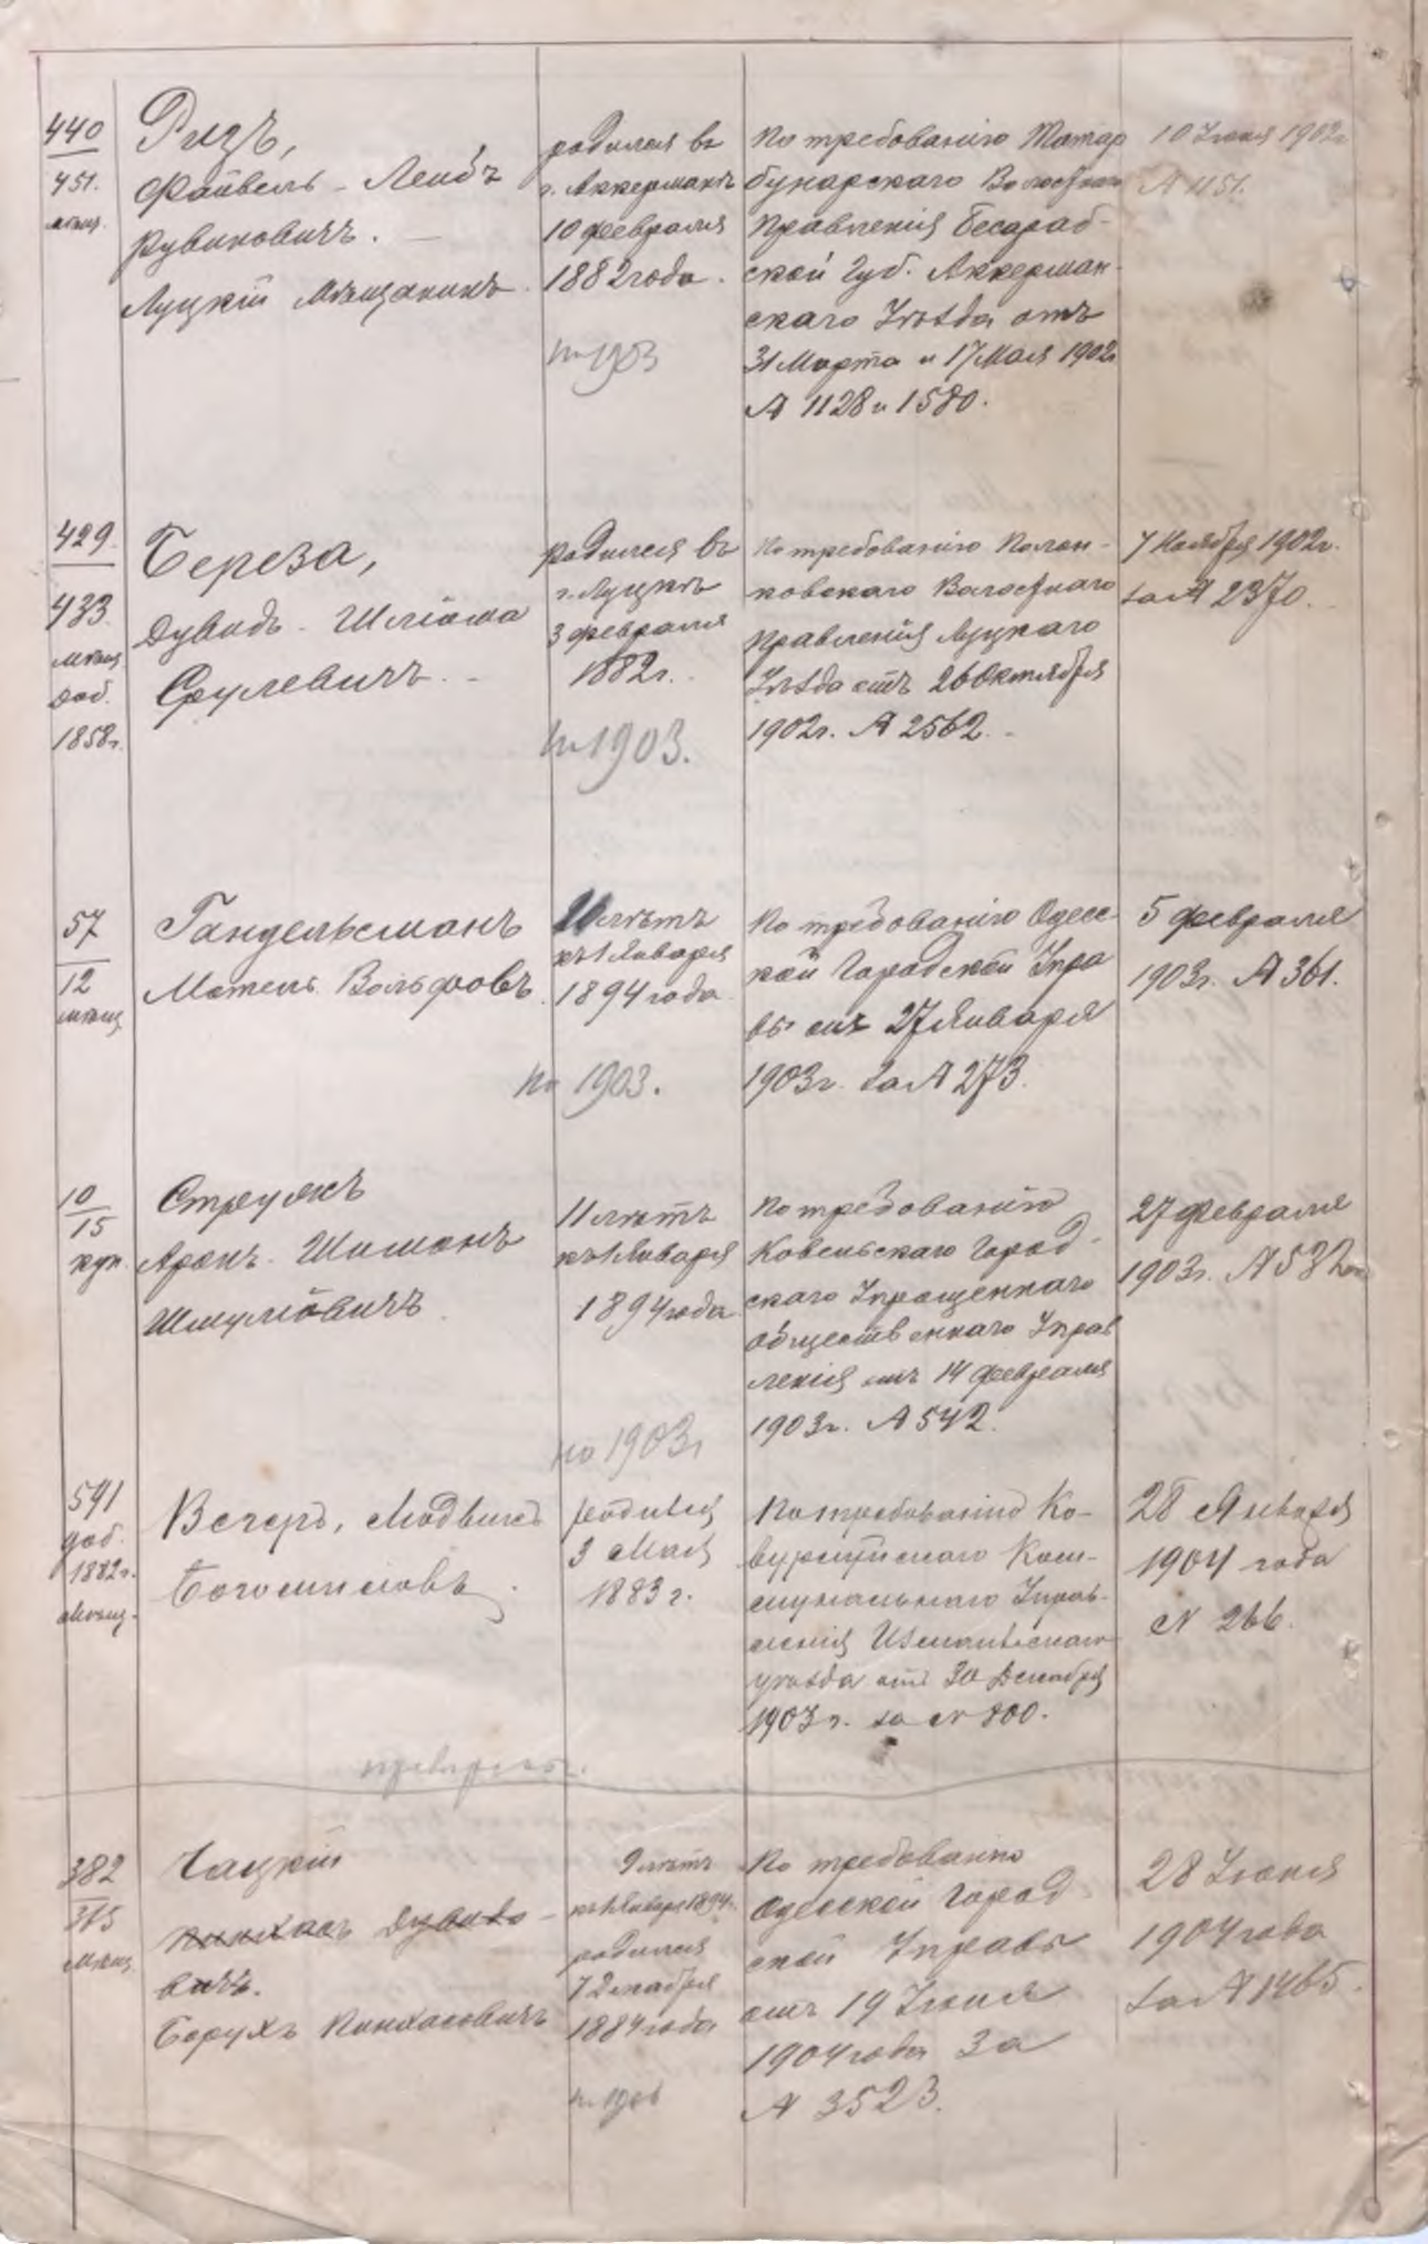 440
451.
мѣщ.
Ризъ,
Файвель-Лейбъ
Рувиновичъ.
Луцкій Мѣщанинъ.
родился въ
г. Аккерманѣ
10 февраля
1882 года.
1903
По требованію Татар
бунарскаго Волостнаго
Правленія Бесараб-
ской Губ. Аккерман-
скаго Уѣзда отъ
31 Марта и 17 Мая 1902г
№ 1128 и 1580.
10 Іюня 1902г
№ 1151.
429
433
мѣщ
доб.
1858г.
Береза,
Дувидъ-Шліома
Срулевичъ.
родился въ
г. Луцкѣ
3 февраля
1882г.
1903.
По требованію Полон-
ковскаго Волостнаго
Правленія Луцкаго
Уѣзда отъ 26 Октября
1902г. № 2562.
7 Ноября 1902г.
за № 2370.
57
12
мѣщ
Гандельсманъ
Мотель Вольфовъ.
лѣтъ
къ 1 Января
1894 года
по 1903.
По требованію Одесс-
кой Городской Упра
вы отъ 27 Января
1903г. за № 273.
5 февраля
1903г. № 361.
10
15
куп.
Струлкъ
Аронъ-Шимонъ
Шмуліовичъ
11 лѣтъ
къ 1 Января
1894 года
по 1903г
По требованію
Ковельскаго Город-
скаго Упрощеннаго
Общественнаго Управ
ленія отъ 14 февраля
1903г. № 542.
27 февраля
1903г. № 532
591
доб.
1882г.
мѣщ.
Вечеръ, Людвигъ
родился
3 Мая
1883г.
По требованію Ко-
мунальнаго Управ-
ленія Измаильскаго
уѣзда отъ 30 Декабря
1903г. за № 800.
28 Января
1904 года
№ 266.
382
315
мѣщ
Чацкій
Пинхасъ Дувидо-
вичъ.
Борухъ Пинхасовичъ
9 лѣтъ
къ 1 Января 1894г.
родился
7 Декабря
1884 года
1906
По требованію
Одесской Город-
ской Управы
отъ 19 Іюня
1904 года За
№ 3523.
28 Іюня
1904 года
за № 1465.